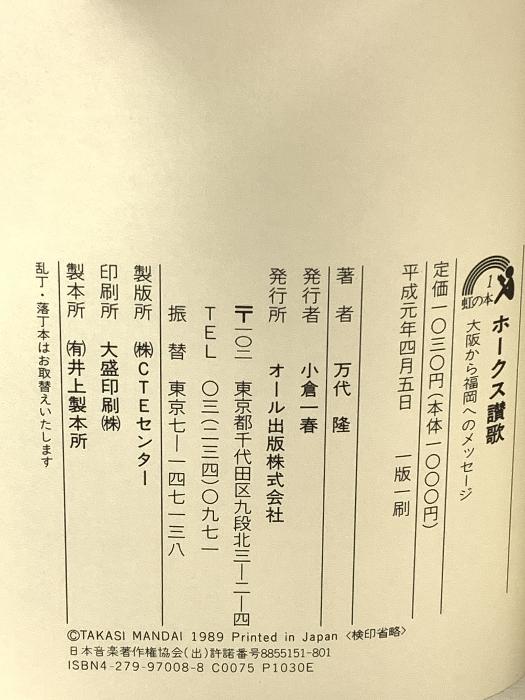 虹の本 1
ホークス讃歌
大阪から福岡へのメッセージ
定価一〇三〇円(本体一〇〇〇円)
平成元年四月五日 一版一刷
著者 万代 隆
発行者 小倉一春
発行所 オール出版株式会社
〒一〇二 東京都千代田区九段北三—二—四
TEL 〇三(二三四)〇九七一
振替 東京七—一四七一三八
製版所 ㈱CTEセンター
印刷所 大盛印刷㈱
製本所 ㈲井上製本所
乱丁・落丁本はお取替えいたします
©TAKASI MANDAI 1989 Printed in Japan 〈検印省略〉
日本音楽著作権協会(出)許諾番号8855151-801
ISBN4-279-97008-8 C0075 P1030E